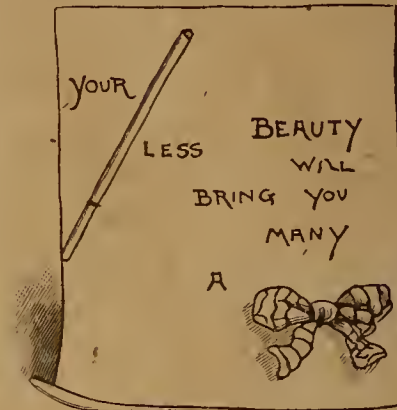 YOUR
LESS
BEAUTY
WILL
BRING YOU
MANY
A